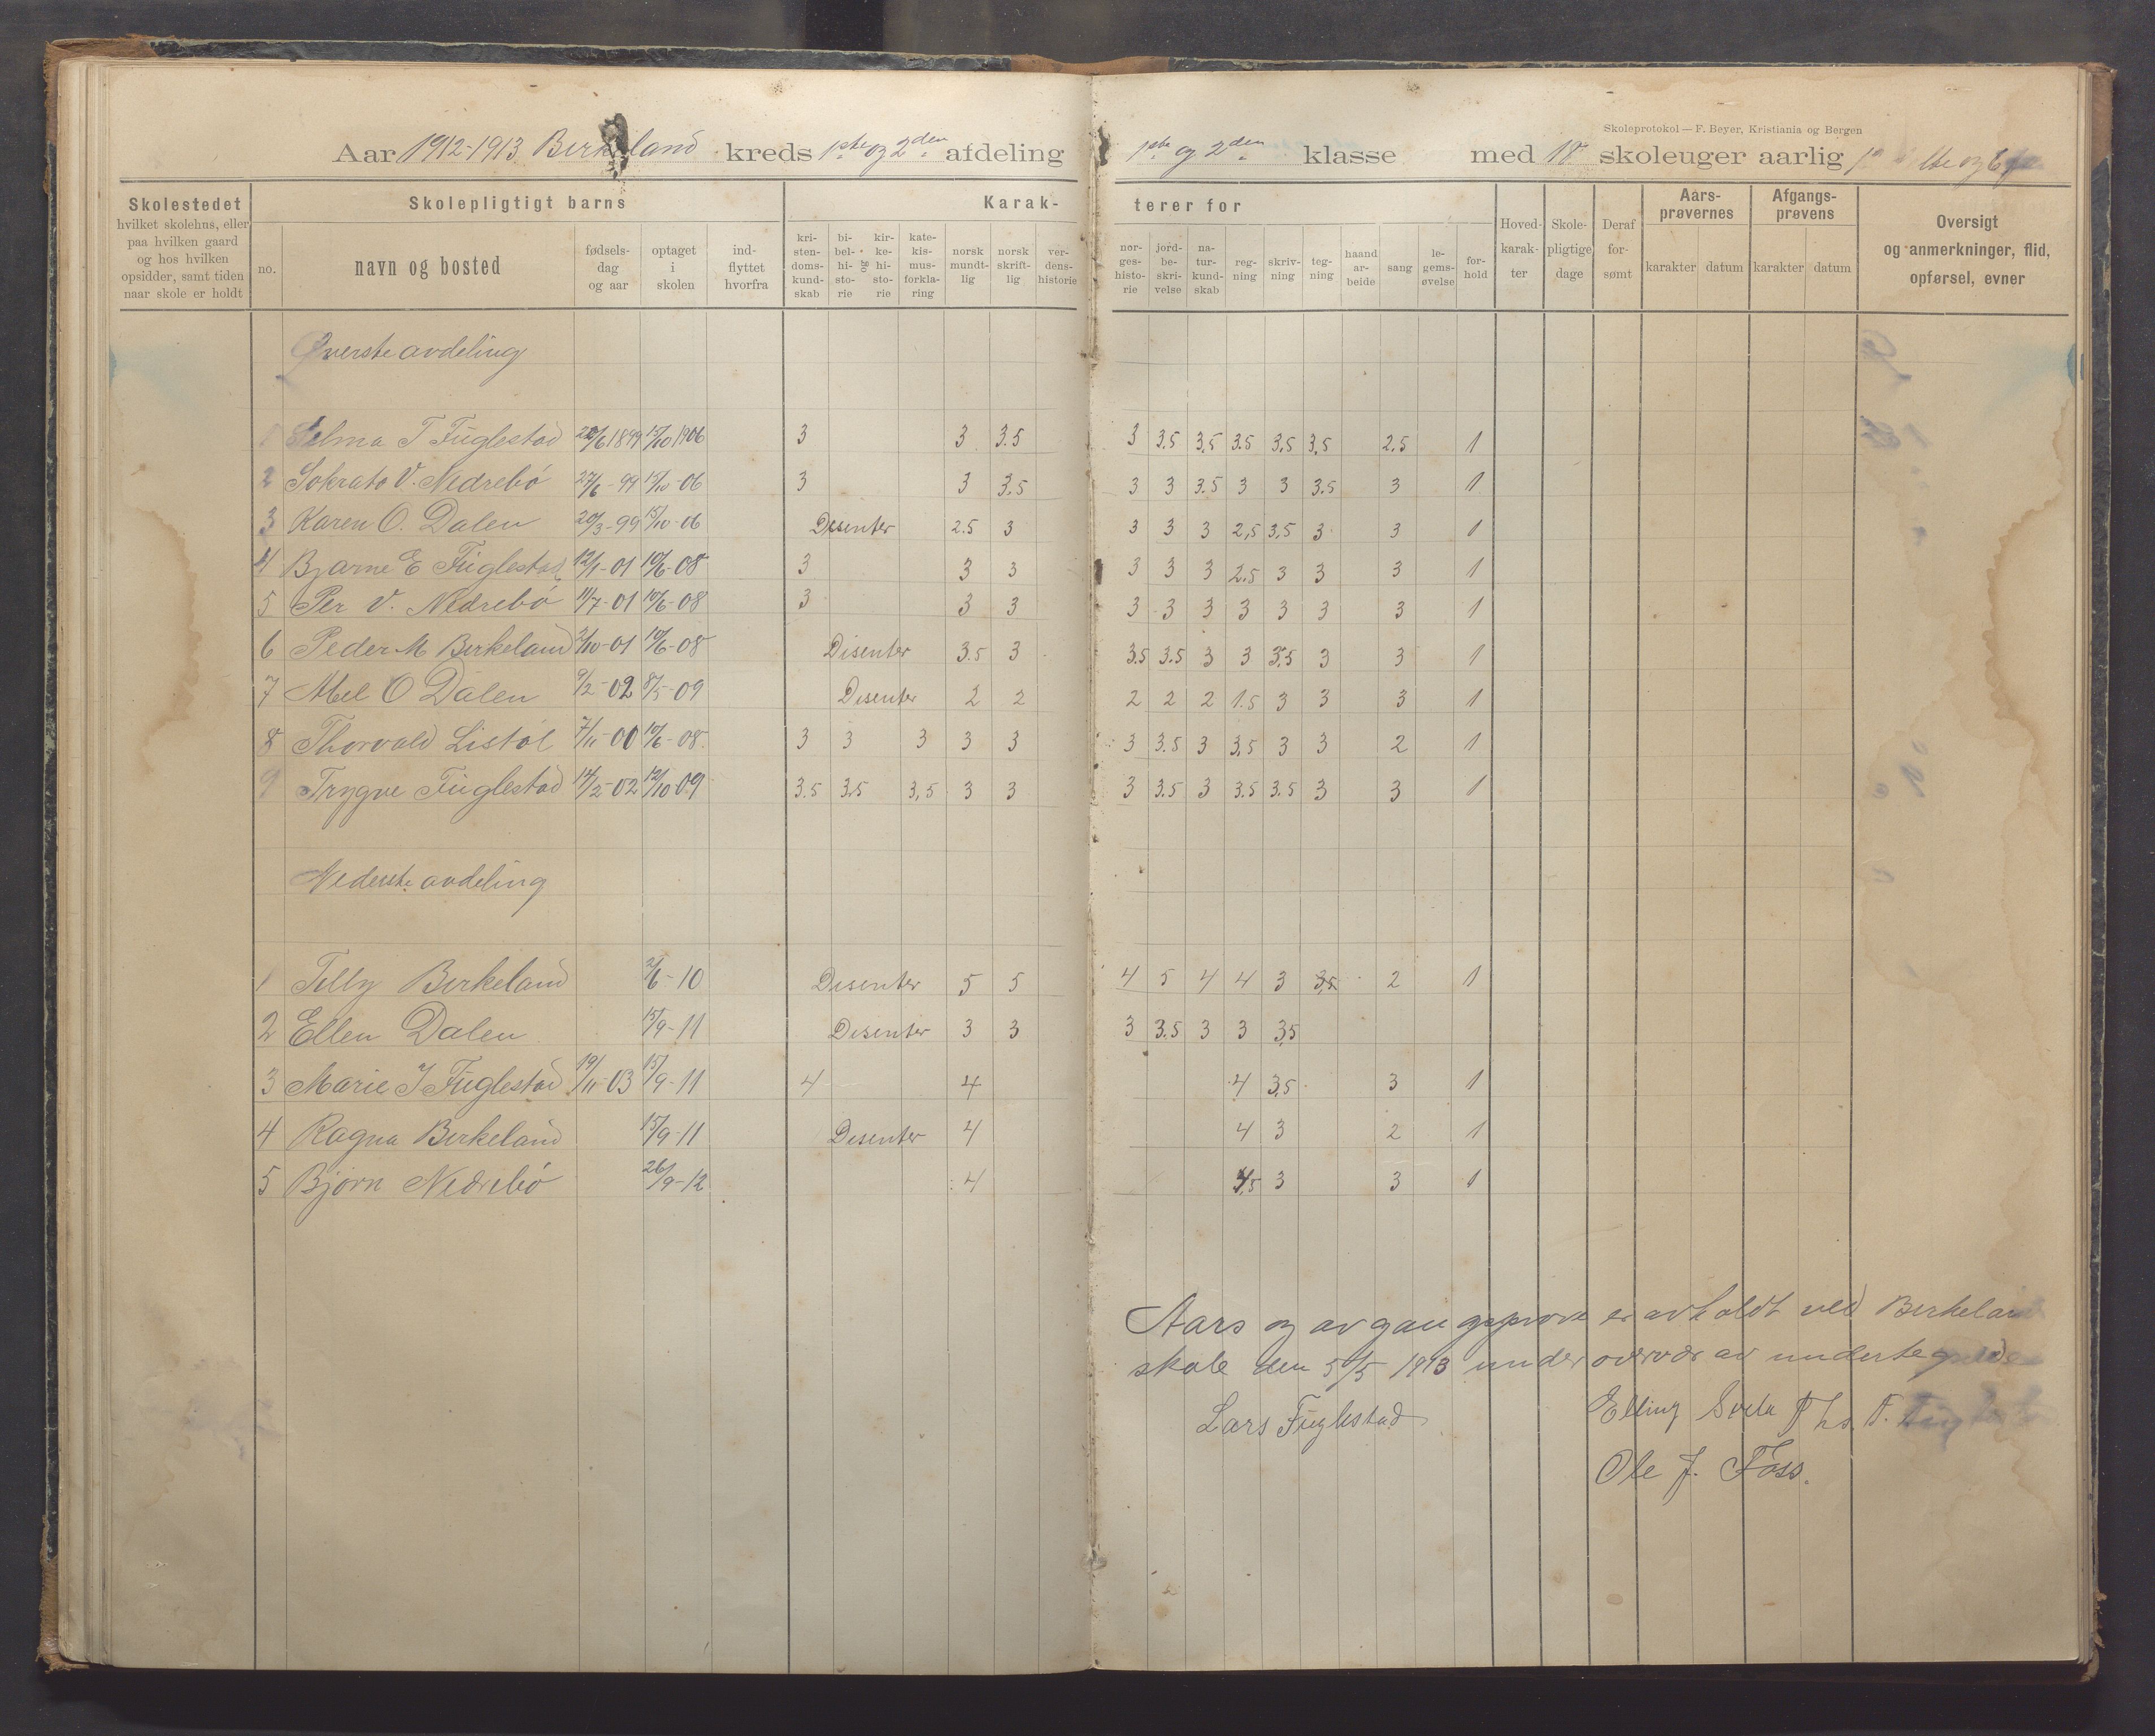 Skoleprotokol — F. Beyer, Kristiania og Bergen
Aar 1912-1913 Birkeland kreds 1ste og 2den afdeling 1ste og 2den klasse med 18 skoleuger aarlig
Skolestedet
hvilket skolehns, eller
paa hvilken gaard
og hos hvilken
opsidder, samt tiden
naar skole er holdt
Skolepligtigt barns
no.
navn og bosted
fødsels-
dag
og aar
optaget
i
skolen
ind-
flyttet
hvorfra
Karak-
kri-
sten-
doms-
kund-
skab
bi-
bel-
hi-
sto-
rie
og
kir-
ke-
hi-
sto-
rie
kate-
kis-
mus-
forkla-
ring
norsk
mundt-
lig
norsk
skrift-
lig
ver-
dens-
historie
terer for
nor-
ges-
histo-
rie
jord-
be-
skri-
velse
na-
tur-
kund-
skab
reg-
ning
skriv-
ning
teg-
ning
haand
ar-
beide
sang
le-
gems-
øvelse
for-
hold
Hoved-
karak-
ter
Skole-
pligtige
dage
Deraf
for-
sømt
Aars-
prøvernes
karakter datum
Afgangs-
prøvens
karakter datum
Oversigt
og anmerkninger, flid,
opførsel, evner
Øverste avdeling
1 Selma T Fuglestad 22/6 1899 15/10 1906 3 3 3.5 3 3.5 3,5 3.5 3,5 3,5 2,5 1
2 Sokrato V. Nedrebö 27/6-99 15/10-06 3 3 3.5 3 3 3.5 3 3 3.5 3 1
3 Karen O. Dalen 20/3-99 15/10-06 Disenter 2.5 3 3 3 3 2,5 3,5 3 3 1
4 Bjarne E Fuglestad 12/1-01 10/6-08 3 3 3 3 3 3 2.5 3 3 3 1
5 Per V. Nedrebö 11/7-01 10/6-08 3 3 3 3 3 3 3 3 3 3 1
6 Peder M Birkeland 2/10-01 10/6-08 Disenter 3.5 3 3.5 3.5 3 3 3.5 3 3 1
7 Mel O Dalen 9/2-02 8/5-09 Disenter 2 2 2 2 2 1.5 3 3 3 1
8 Thorvald Listöl 7/11-00 10/6-08 3 3 3 3 3 3 3.5 3 3,5 3 3 2 1
9 Trygve Fuglestad 14/2-02 12/10 09 3.5 3,5 3,5 3 3 3 3.5 3 3.5 3.5 3 3 1
Nederste avdeling
1 Tilly Birkeland 2/6-10 Disenter 5 5 4 5 4 4 3 3,5 2 1
2 Ellen Dalen 15/9-11 Disenter 3 3 3 3.5 3 3 3,5
3 Marie J Fuglestad 19/11-03 15/9-11 4 4 4 3,5 3 1
4 Ragna Birkeland 15/9-11 Disenter 4 4 3 2 1
5 Björn Nedrebö 26/9-12 4 3,5 3 3 1
Aars og avgangsprøve er avholdt ved Birkeland
skole den 5/5 1913 under overvær av undertegnede
Lars Fuglestad Elling Svela Ths. T.
Ole J. Foss.